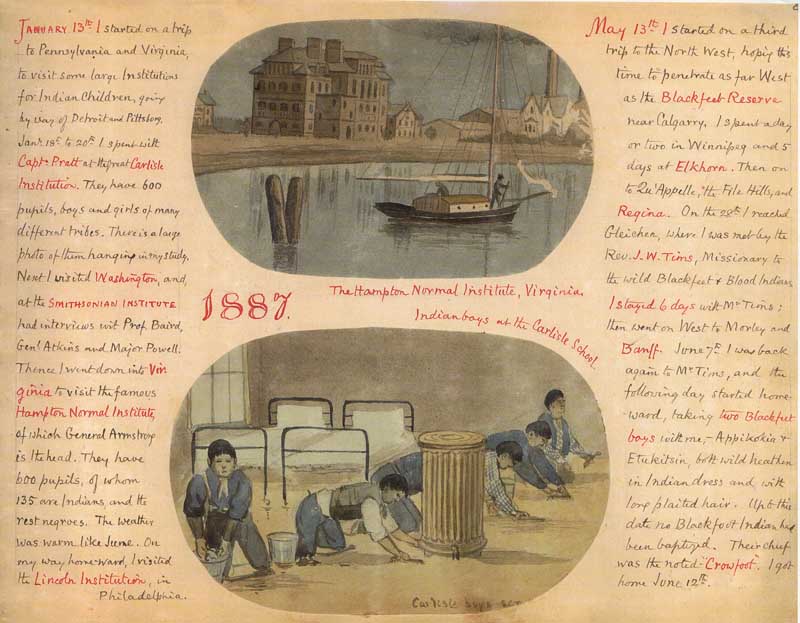 JANUARY. 13th I started on a trip
to Pennsylvania and Virginia,
to visit some large Institutions
for Indian Children, going
by way of Detroit and Pittsburg.
Jany. 18th to 20th I spent with
Captn Pratt at the great Carlisle
Institution. They have 600
pupils, boys and girls of many
different tribes. There is a large
photo of them hanging in my study.
Next I visited Washington, and,
at the SMITHSONIAN INSTITUTE
had interviews wit Prof. Baird,
Genl Atkins and Major Powell.
Thence I went down into Vir
ginia to visit the famous
Hampton Normal Institute,
of which General Armstrong
is the head. They have
600 pupils, of whom
135 are Indians, and the
rest negroes. The weather
was warm like June. On
my way home-ward, I visited
the Lincoln Institution, in
Philadelphia.
1887.
The Hampton Normal Institute, Virginia.
Indian boys at the Carlisle School.
Carlisle boys scr
May 13th I started on a third
trip to the North West, hoping this
time to penetrate as far West
as the Blackfeet Reserve
near Calgarry. I spent a day
or two in Winnipeg and 5
days at Elkhorn. Then on
to Qu'Appelle, the File Hills, and
Regina. On the 28th I reached
Gleichen, where I was met by the
Rev. J. W. Tims, Missionary to
the wild Blackfeet & Blood Indians.
I stayed 6 days with Mr Tims;
then went on West to Morley and
Banff. June 7th I was back
again to Mr Tims, and the
following day started home-
ward, taking two Blackfeet
boys with me,- Appikokia &
Etukitsin, both wild heathen
in Indian dress and with
long plaited hair. Up to this
date no Blackfoot Indian had
been baptized. Their chief
was the noted "Crowfoot". I got
home June 12th.